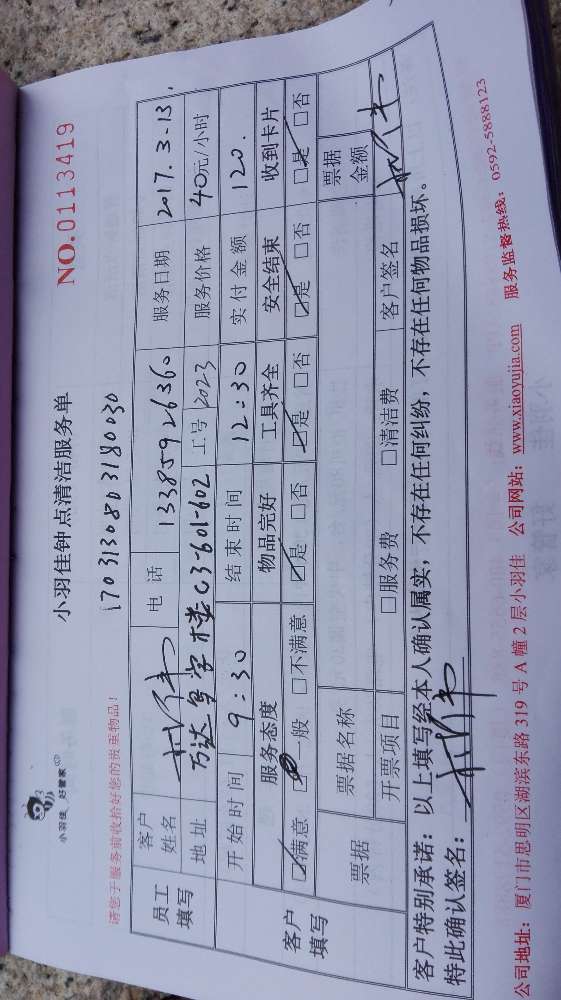 小羽佳 好管家
小羽佳钟点清洁服务单
NO.01113419
请您于服务前收拾好您的贵重物品!
1703130803180030
员工填写
客户姓名 电话 13385926360 服务日期 2017.3-13.
地址 万达写字楼C3-601-602 工号 2023 服务价格 40元/小时
开始时间 9:30 结束时间 12:30 实付金额 120.
客户填写
服务态度 物品完好 工具齐全 安全结束 收到卡片
☑满意 □一般 □不满意 ☑是 □否 ☑是 □否 ☑是 □否 ☑是 □否
票据 票据名称 票据金额
开票项目 □服务费 □清洁费 客户签名
客户特别承诺:以上填写经本人确认属实,不存在任何纠纷,不存在任何物品损坏。
特此确认签名:
公司地址:厦门市思明区湖滨东路319号A幢2层小羽佳 公司网站:www.xiaoyujia.com 服务监督热线:0592-5888123